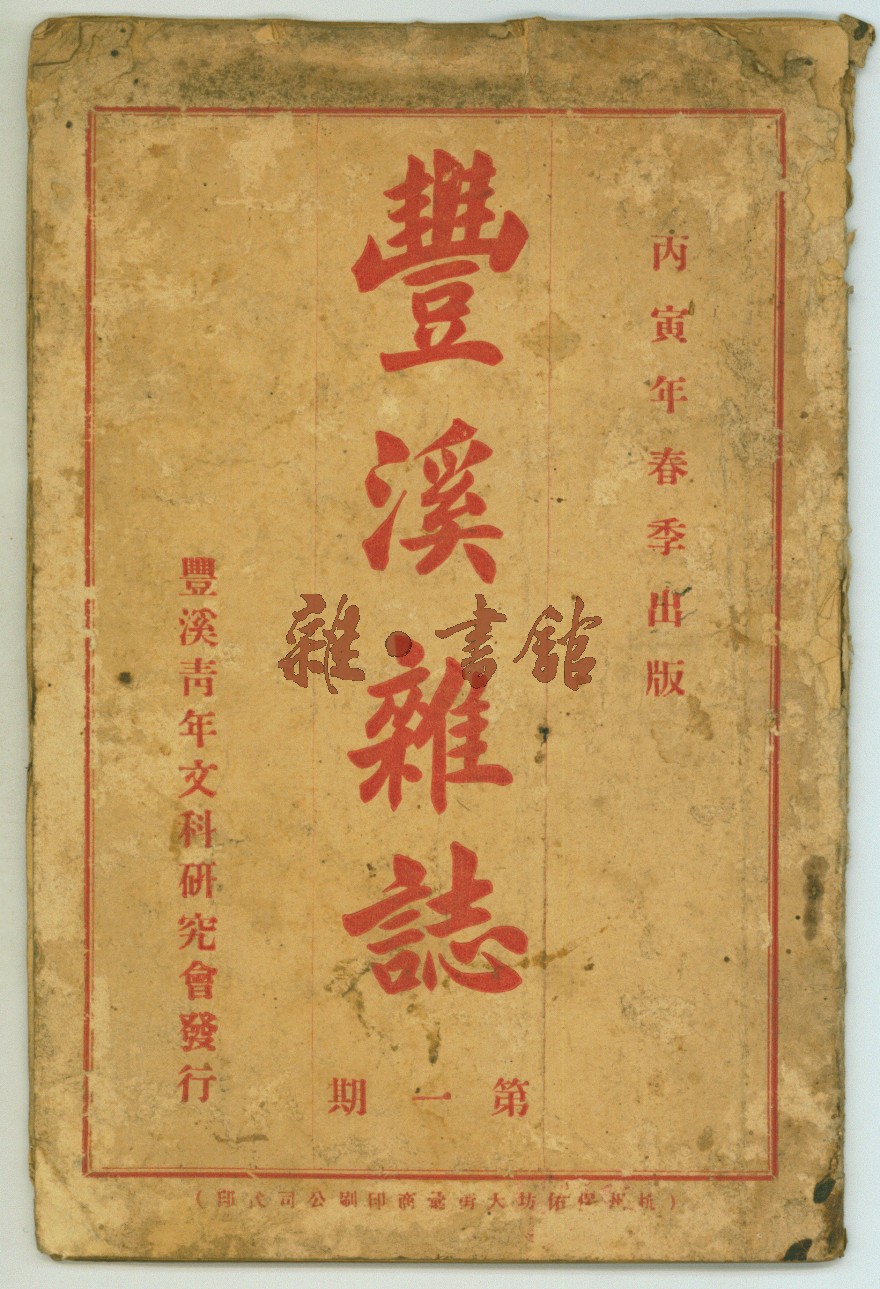 丙寅年春季出版
豐溪雜誌
第一期
豐溪青年文科研究會發行
雜·書館
(杭州保佑坊大街彙商印刷公司代印)